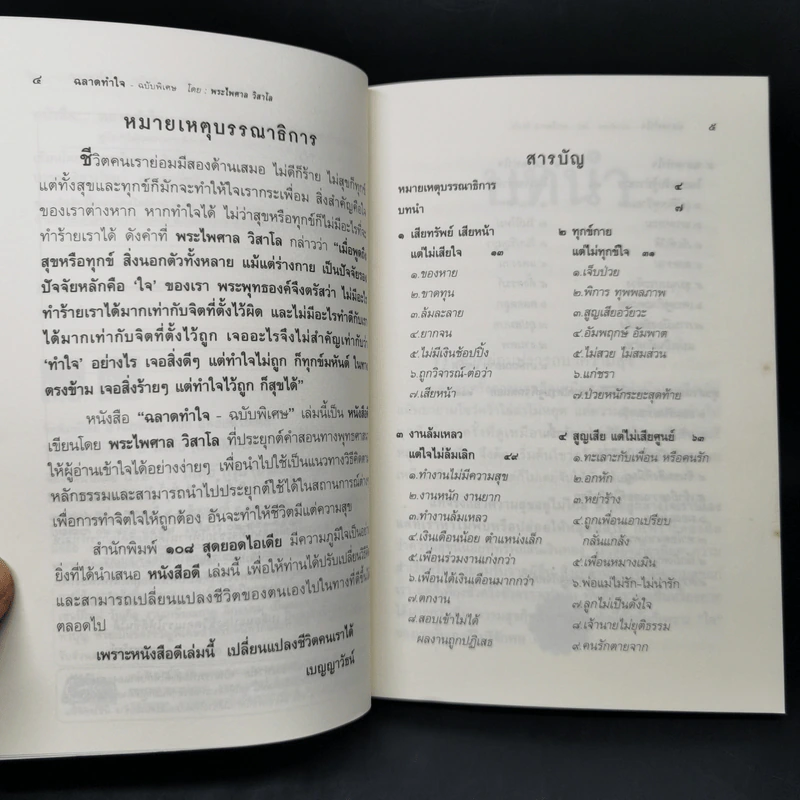 ๔ ฉลาดทำใจ - ฉบับพิเศษ โดย : พระไพศาล วิสาโล
หมายเหตุบรรณาธิการ
ชีวิตคนเราย่อมมีสองด้านเสมอ ไม่ดีก็ร้าย ไม่สุขก็ทุกข์
แต่ทั้งสุขและทุกข์ก็มักจะทำให้ใจเรากระเพื่อม สิ่งสำคัญคือใจ
ของเราต่างหาก หากทำใจได้ ไม่ว่าสุขหรือทุกข์ก็ไม่มีอะไรที่จะ
ทำร้ายเราได้ ดังคำที่ พระไพศาล วิสาโล กล่าวว่า “เมื่อพูดถึง
สุขหรือทุกข์ สิ่งนอกตัวทั้งหลาย แม้แต่ร่างกาย เป็นปัจจัยรอง
ปัจจัยหลักคือ ‘ใจ’ ของเรา พระพุทธองค์จึงตรัสว่า ไม่มีอะไร
ทำร้ายเราได้มากเท่ากับจิตที่ตั้งไว้ผิด และไม่มีอะไรทำดีกับเรา
ได้มากเท่ากับจิตที่ตั้งไว้ถูก เจออะไรจึงไม่สำคัญเท่ากับว่า
‘ทำใจ’ อย่างไร เจอสิ่งดีๆ แต่ทำใจไม่ถูก ก็ทุกข์มหันต์ ในทาง
ตรงข้าม เจอสิ่งร้ายๆ แต่ทำใจไว้ถูก ก็สุขได้”
หนังสือ “ฉลาดทำใจ - ฉบับพิเศษ” เล่มนี้เป็น หนังสือที่
เขียนโดย พระไพศาล วิสาโล ที่ประยุกต์คำสอนทางพุทธศาสนา
ให้ผู้อ่านเข้าใจได้อย่างง่ายๆ เพื่อนำไปใช้เป็นแนวทางวิธีคิดตาม
หลักธรรมและสามารถนำไปประยุกต์ใช้ได้ในสถานการณ์ต่างๆ
เพื่อการทำจิตใจให้ถูกต้อง อันจะทำให้ชีวิตมีแต่ความสุข
สำนักพิมพ์ ๑๐๘ สุดยอดไอเดีย มีความภูมิใจเป็นอย่าง
ยิ่งที่ได้นำเสนอ หนังสือดี เล่มนี้ เพื่อให้ท่านได้ปรับเปลี่ยนวิธีคิด
และสามารถเปลี่ยนแปลงชีวิตของตนเองไปในทางที่ดีขึ้น
ตลอดไป
เพราะหนังสือดีเล่มนี้ เปลี่ยนแปลงชีวิตคนเราได้
เบญญาวัธน์
๕
สารบัญ
หมายเหตุบรรณาธิการ ๔
บทนำ ๗
๑ เสียทรัพย์ เสียหน้า
แต่ไม่เสียใจ ๑๓
๑.ของหาย
๒.ขาดทุน
๓.ล้มละลาย
๔.ยากจน
๕.ไม่มีเงินช้อปปิ้ง
๖.ถูกวิจารณ์-ต่อว่า
๗.เสียหน้า
๒ ทุกข์กาย
แต่ไม่ทุกข์ใจ ๓๑
๑.เจ็บป่วย
๒.พิการ ทุพพลภาพ
๓.สูญเสียอวัยวะ
๔.อัมพฤกษ์ อัมพาต
๕.ไม่สวย ไม่สมส่วน
๖.แก่ชรา
๗.ป่วยหนักระยะสุดท้าย
๓ งานล้มเหลว
แต่ใจไม่ล้มเลิก ๔๙
๑.ทำงานไม่มีความสุข
๒.งานหนัก งานยาก
๓.ทำงานล้มเหลว
๔.เงินเดือนน้อย ตำแหน่งเล็ก
๕.เพื่อนร่วมงานเก่งกว่า
๖.เพื่อนได้เงินเดือนมากกว่า
๗.ตกงาน
๘.สอบเข้าไม่ได้
ผลงานถูกปฏิเสธ
๔ สูญเสีย แต่ไม่เสียศูนย์ ๖๓
๑.ทะเลาะกับเพื่อน หรือคนรัก
๒.อกหัก
๓.หย่าร้าง
๔.ถูกเพื่อนเอาเปรียบ
กลั่นแกล้ง
๕.เพื่อนหมางเมิน
๖.พ่อแม่ไม่รัก-ไม่น่ารัก
๗.ลูกไม่เป็นดั่งใจ
๘.เจ้านายไม่ยุติธรรม
๙.คนรักตายจาก